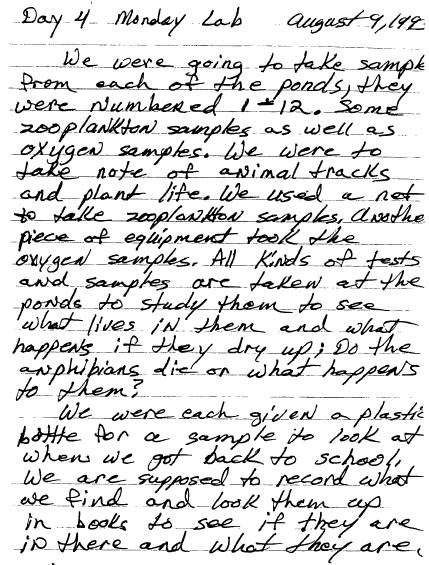 Day 4 Monday Lab August 9, 199
We were going to take sample
from each of the ponds, they
were numbered 1-12. Some
zooplankton samples as well as
oxygen samples. We were to
take note of animal tracks
and plant life. We used a net
to take zooplankton samples. Anothe
piece of equipment took the
oxygen samples. All kinds of tests
and samples are taken at the
ponds to study them to see
what lives in them and what
happens if they dry up; Do the
amphibians die or what happens
to them?
We were each given a plastic
bottle for a sample to look at
when we got back to school.
We are supposed to record what
we find and look them up
in books to see if they are
in there and what they are.